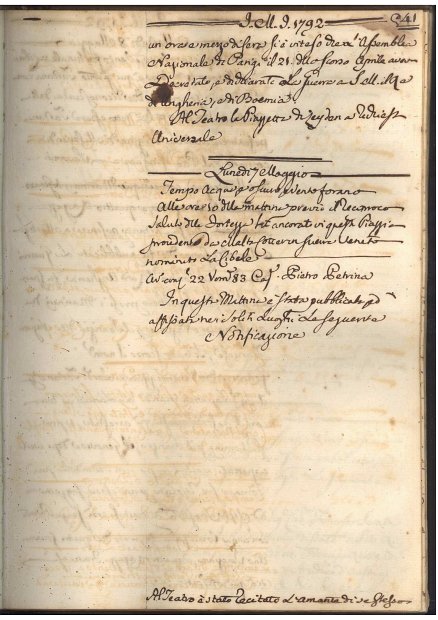 I.M.I. 1792 41
un ora e mezzo di sera si è inteso che l'Assemblea
Nazionale di Parigi il 21. dello scorso Aprile aveva
Decretato, e dichiarato la Guerra a S. M. il Re
d'Ungheria, e di Boemia.
Al Teatro le
Universale
Lunedi 7 Maggio
Tempo Acqua, e vento forano
Alle ore della mattina previo il Reciproco
Saluto della Fortezza ha ancorato in questa Piazza
proveniente da Malta Guerra Veneto
nominato La Cibele
22 Pietro Petrina
In questa Mattina è stata pubblicata, ed
affissata nei soliti Luoghi La seguente
Notificazione
Al Teatro è stato recitato L'amante di se stesso